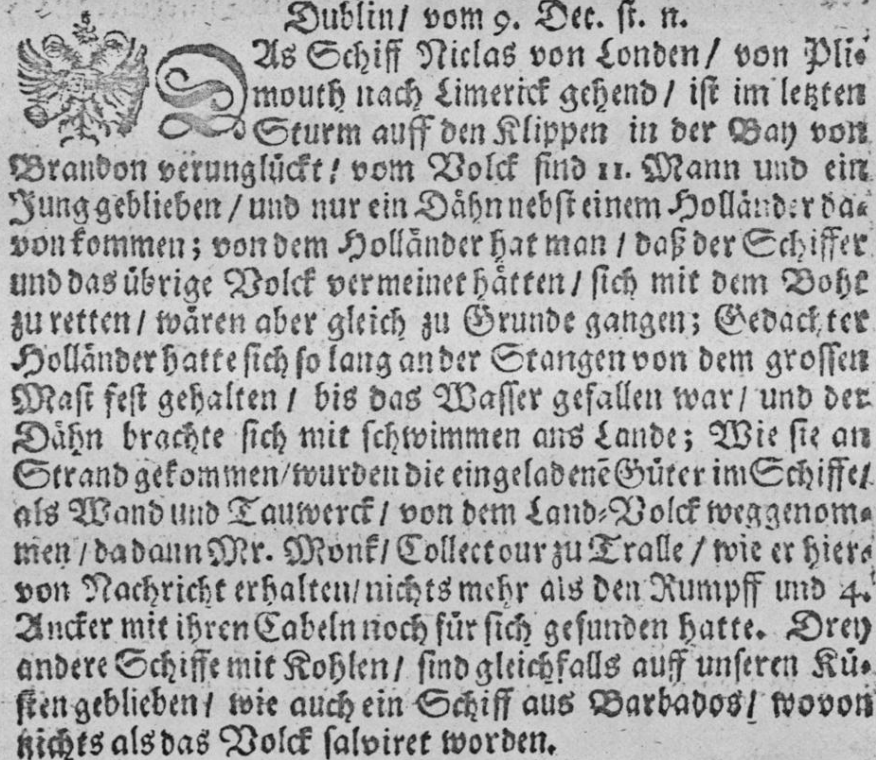 Dublin/ vom 9. Dec. st. n.
DAs Schiff Niclas von Londen/ von Pli-
mouth nach Limerick gehend/ ist im letzten
Sturm auff den Klippen in der Bay von
Brandon verunglückt/ vom Volck sind 11. Mann und ein
Jung geblieben/ und nur ein Dähn nebst einem Holländer da-
von kommen; von dem Holländer hat man/ daß der Schiffer
und das übrige Volck vermeinet hätten/ sich mit dem Boht
zu retten/ wären aber gleich zu Grunde gangen; Gedachter
Holländer hatte sich so lang an der Stangen von dem grossen
Mast fest gehalten/ bis das Wasser gefallen war/ und der
Dähn brachte sich mit schwimmen ans Lande; Wie sie an
Strand gekommen/ wurden die eingeladenē Güter im Schiffe/
als Wand und Tauwerck/ von dem Land-Volck weggenom-
men/ da dann Mr. Monk/ Collectour zu Tralle/ wie er hier-
von Nachricht erhalten/ nichts mehr als den Rumpff und 4.
Ancker mit ihren Cabeln noch für sich gefunden hatte. Drey
andere Schiffe mit Kohlen/ sind gleichfalls auff unseren Kü-
sten geblieben/ wie auch ein Schiff aus Barbados/ wovon
nichts als das Volck salviret worden.